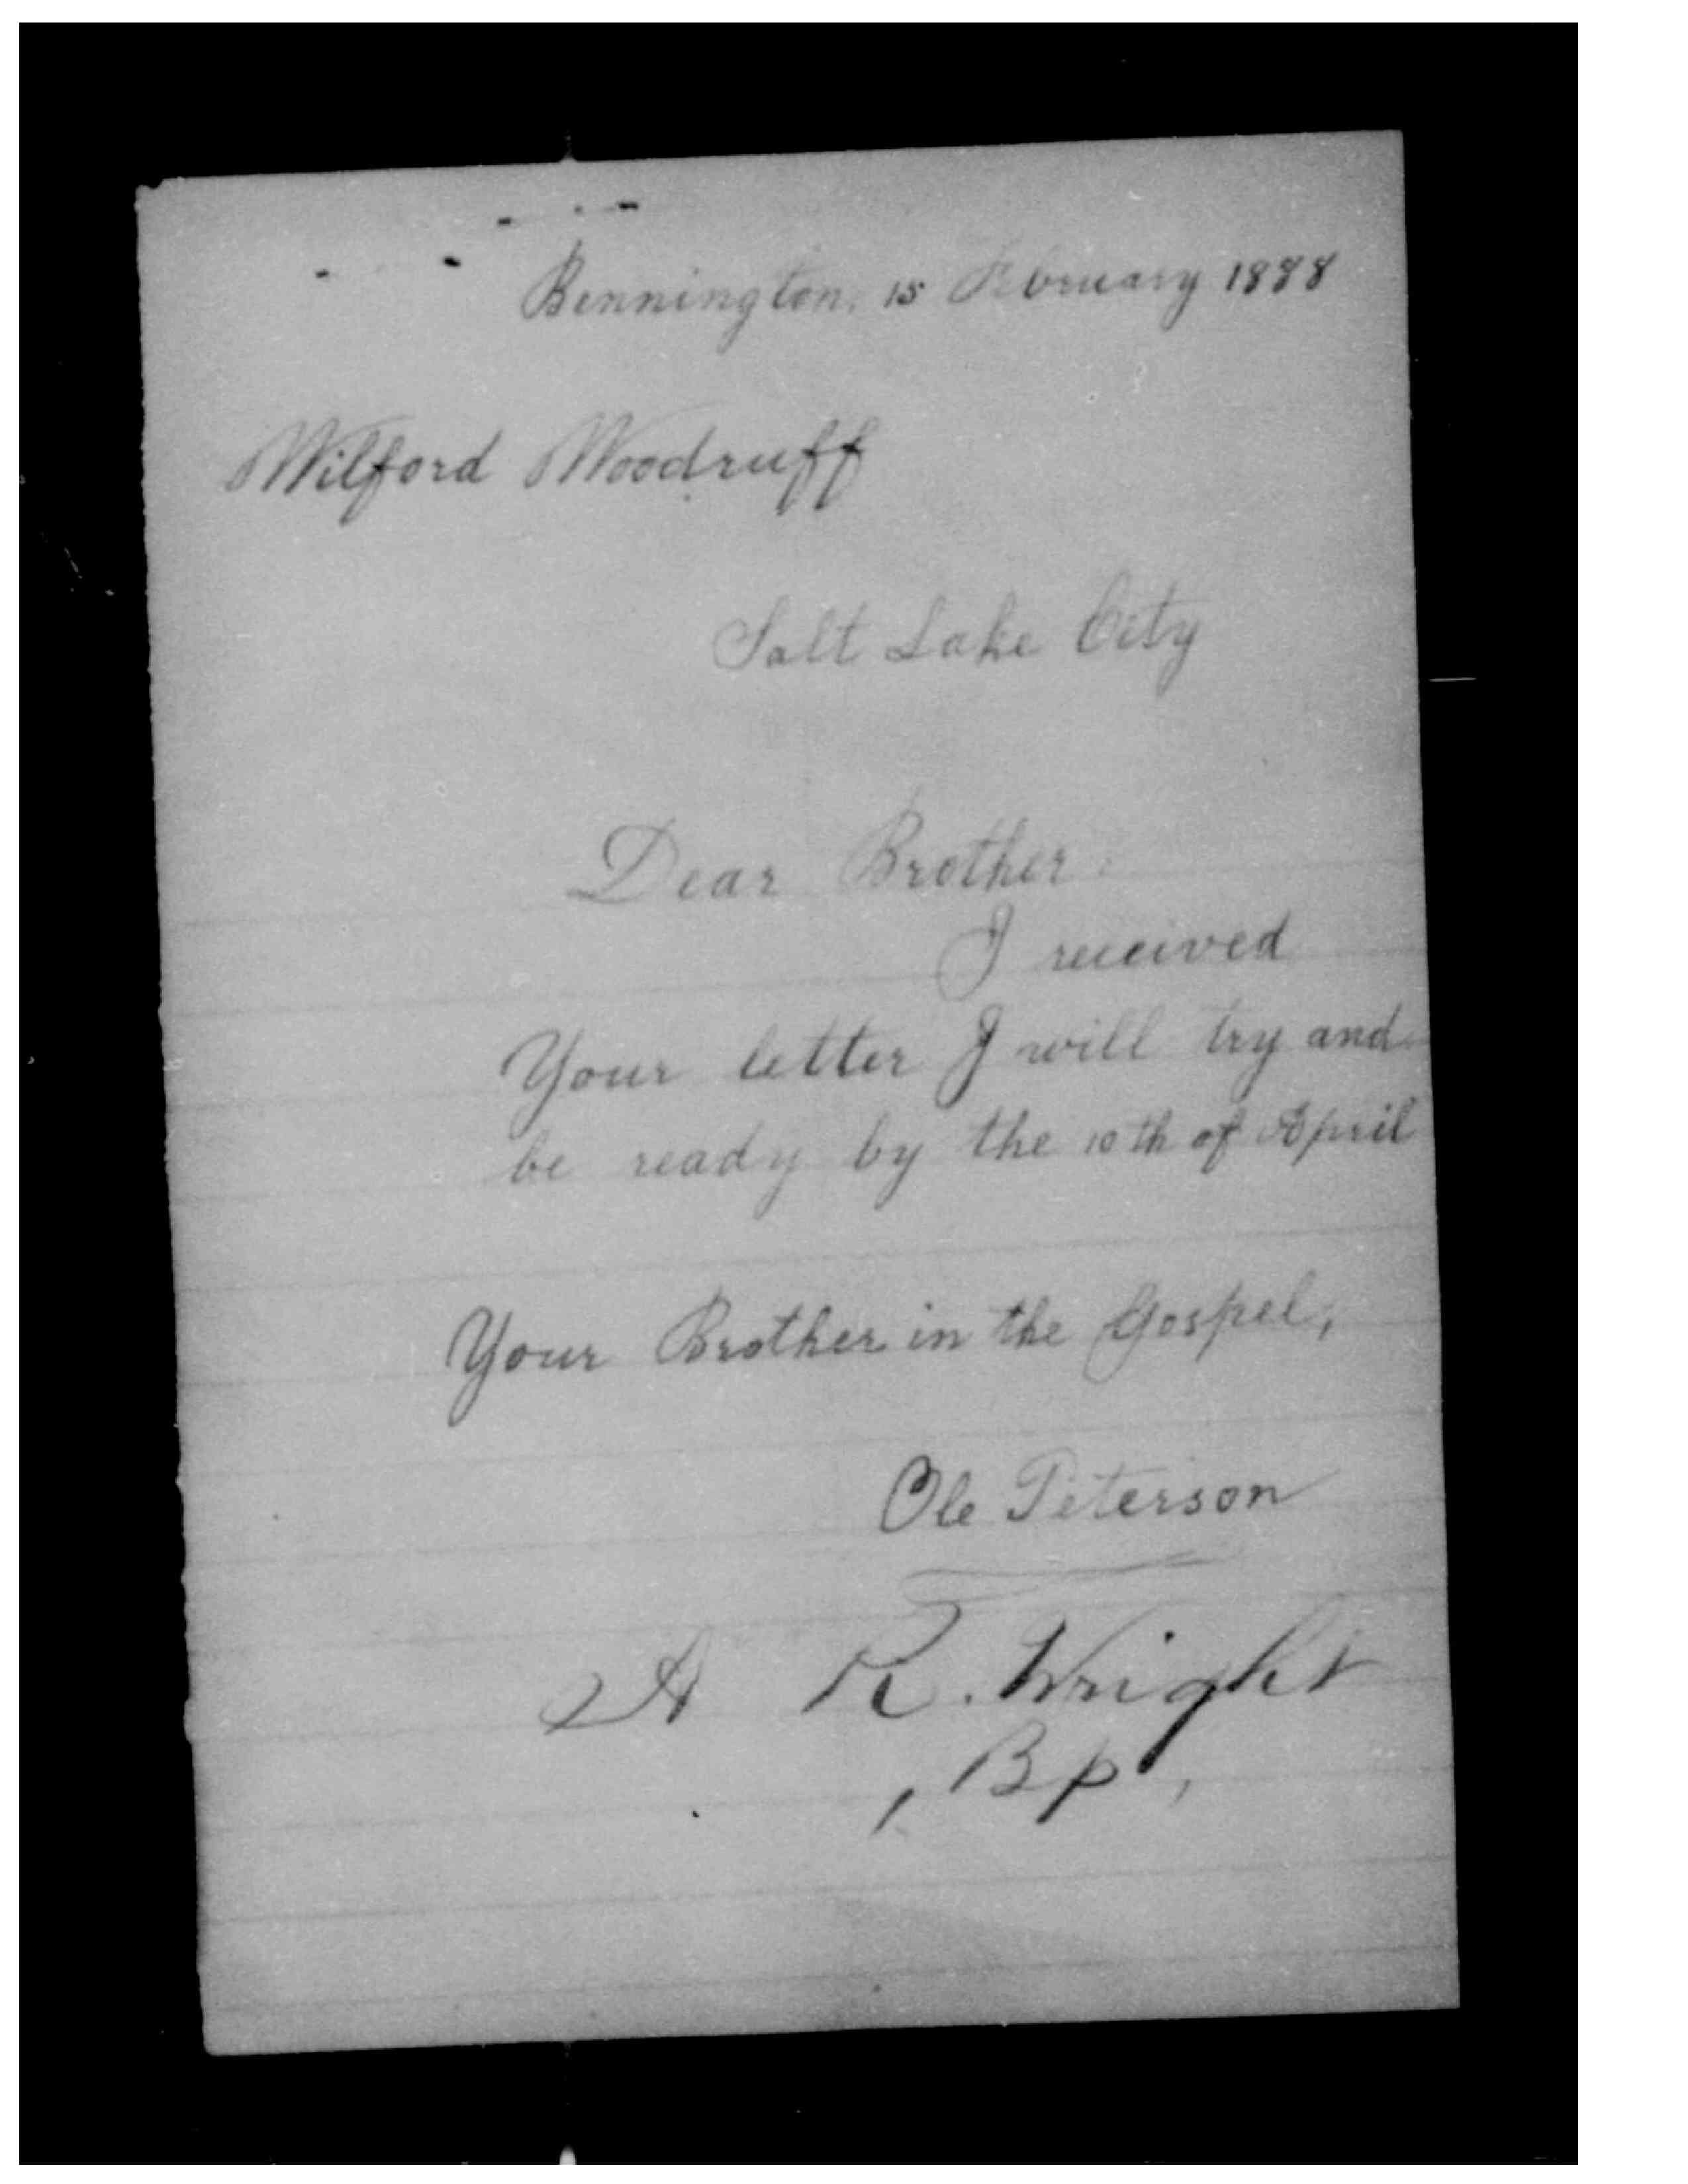 Bennington, 15 February 1888
Wilford Woodruff
Salt Lake City
Dear Brother.
I received
Your letter I will try and
be ready by the 10th of April
Your Brother in the Gospel,
Ole Peterson
A R. Wright
, Bp,